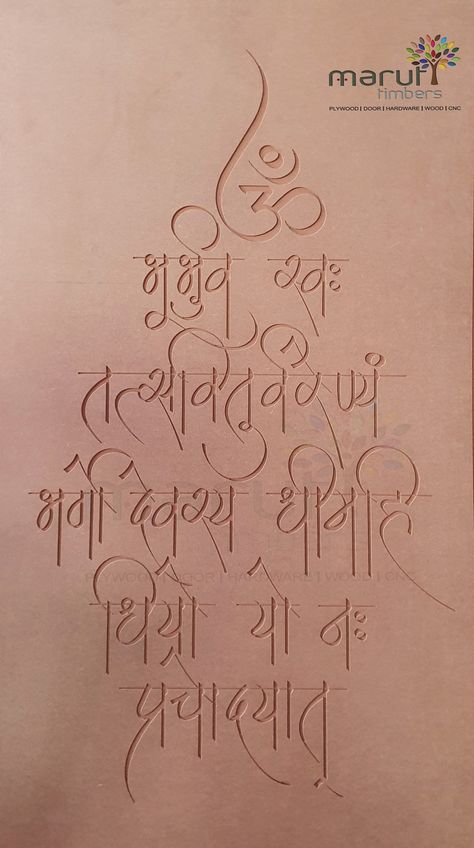 maruti
timbers
PLYWOOD | DOOR | HARDWARE | WOOD | CNC
ॐ
भूर्भुव स्वः
तत्सवितुर्वरेण्यं
भर्गो देवस्य धीमहि
धियो यो नः
प्रचोदयात्
maruti
PLYWOOD | DOOR | HARDWARE | WOOD | CNC